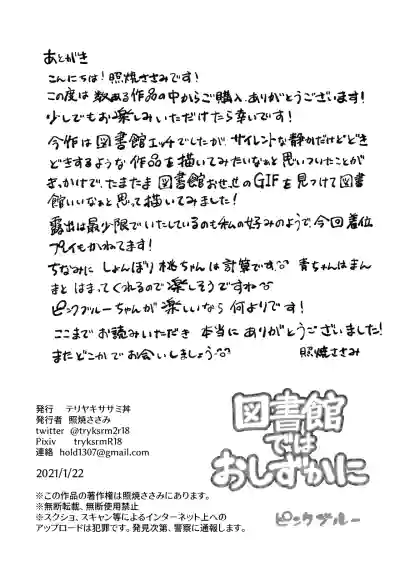 あとがき
こんにちは！照焼ささみです！
この度は数ある作品の中からご購入、ありがとうございます！
少しでもお楽しみいただけたら幸いです！
今作は図書館エッチでしたが、サイレントな静かだけどどき
どきするような作品を描いてみたいなぁと思いついたことが
きっかけで、たまたま図書館おせっせのGIFを見つけて図書
館いいなぁと思って描いてみました！
露出は最少限でいたしているのも私の好みのようで、今回着位
プレイもかねてます！
ちなみにしょんぼり桃ちゃんは計算です 青ちゃんはまん
まとはまってくれるので楽しそうですね
ピンクブルーちゃんが楽しいなら何よりです！
ここまでお読みいただき本当にありがとうございました！
またどこかでお会いしましょう 照焼ささみ
発行 テリヤキササミ丼
発行者 照焼ささみ
twitter @tryksrm2r18
Pixiv tryksrmR18
連絡 hold1307@gmail.com
2021/1/22
※この作品の著作権は照焼ささみにあります。
※無断転載、無断使用禁止
※スクショ、スキャン等によるインターネット上への
アップロードは犯罪です。発見次第、警察に通報します。
図書館
では
おしずかに
ピンクブルー